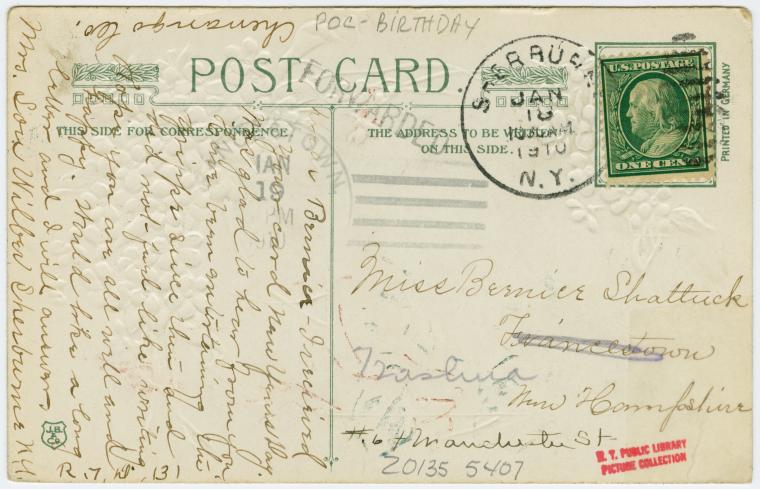 POC-BIRTHDAY
POST CARD.
THIS SIDE FOR CORRESPONDENCE.
THE ADDRESS TO BE WRITTEN
ON THIS SIDE.
FORWARDED
SHERBURNE
JAN
18
AM
1910
N.Y.
JAN
19
AM
U.S. POSTAGE
ONE CENT
PRINTED IN GERMANY
Miss Bernice Shattuck
Francestown
Nashua
New Hampshire
#64 Manchester St
20135 5407
N. Y. PUBLIC LIBRARY
PICTURE COLLECTION
Bernice I recieved
your card New Years Day.
was glad to hear from you
have been entertaining the
Grippe since then and
did not feel like writing
Hope you are all well and
happy. Would like a long
letter and I will answer
Mrs. Lou Wilber Sherburne N.Y.
Chenango Co.
R.F.D. 31